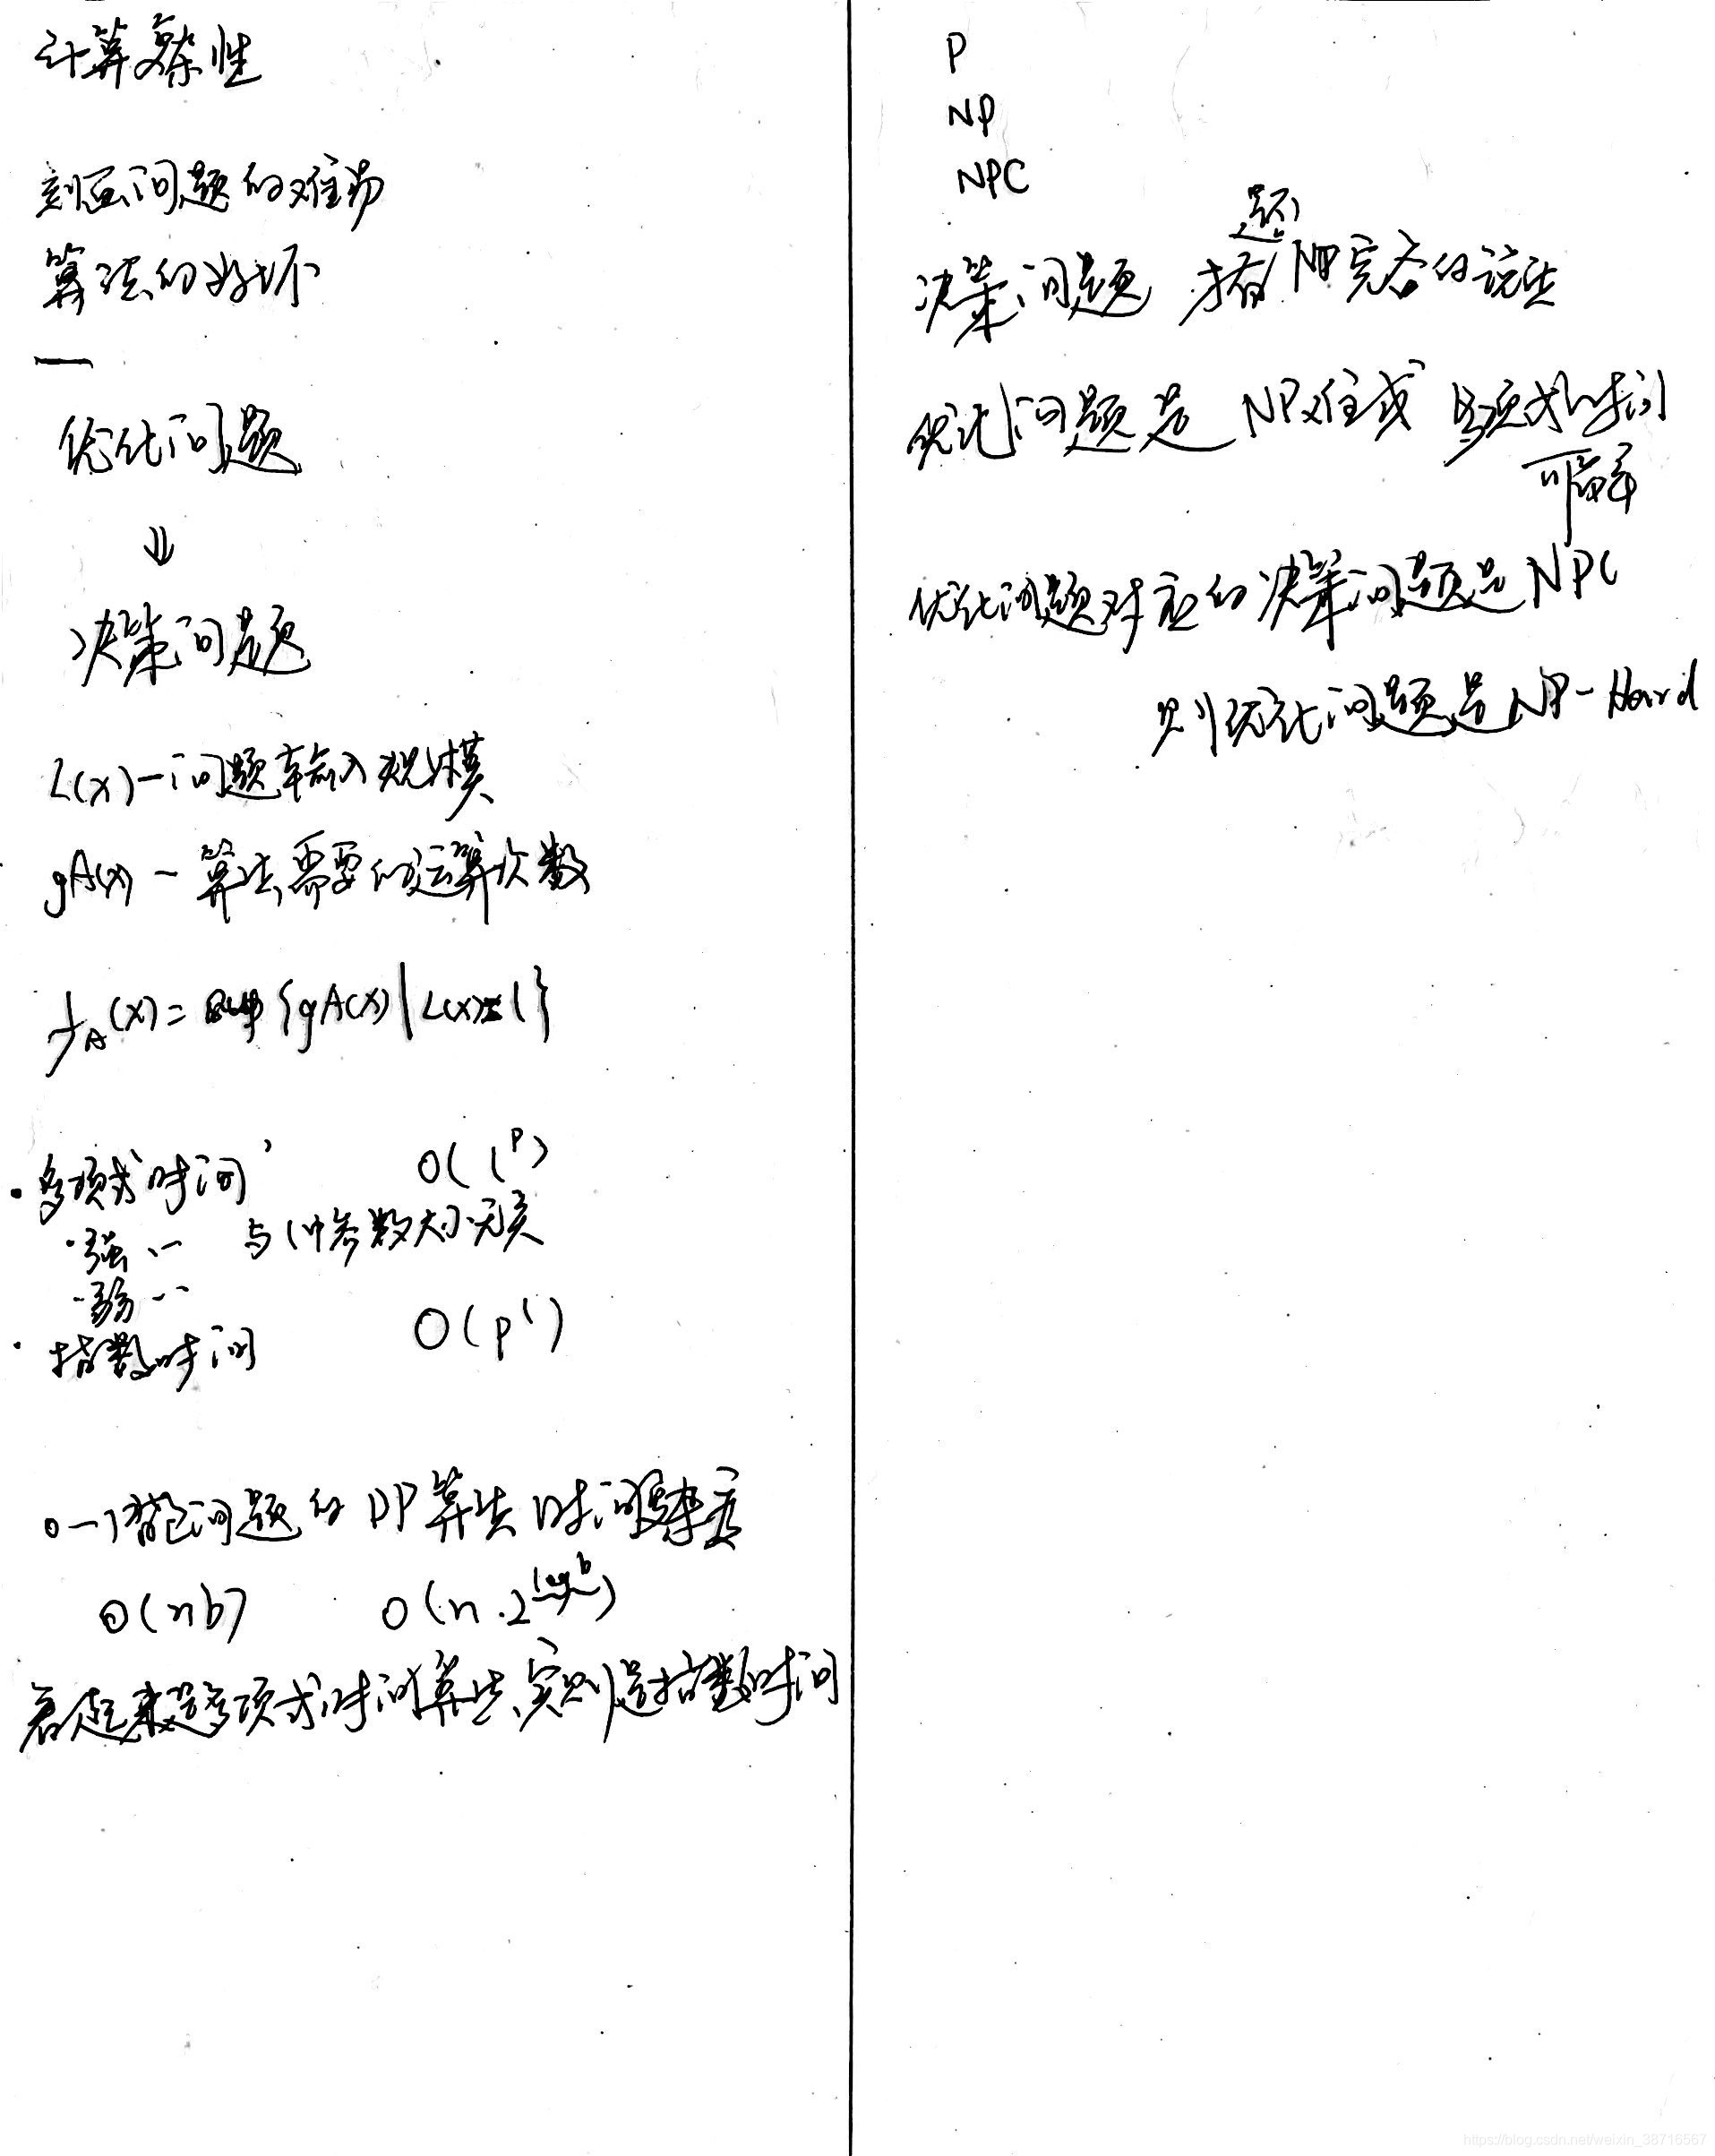 计算复杂性
刻画问题的难易
算法的好坏
优化问题
⇓
决策问题
L(x)—问题输入规模
gA(x) — 算法需要的运算次数
f_A(x) = sup {gA(x) | L(x)=l}
· 多项式时间 O(l^p)
· 强 ·· 与l中参数大小无关
· 弱 ··
· 指数时间 O(p^l)
0-1背包问题的DP算法时间复杂度
O(nb) O(n·2^{log b})
看起来是多项式时间算法、实则是指数时间
P
NP
NPC
题
决策问题 才有 NP完备的说法
优化问题是 NP难或 多项式时间
可解
优化问题对应的决策问题是NPC
则优化问题是NP-Hard
https://blog.csdn.net/weixin_38716567